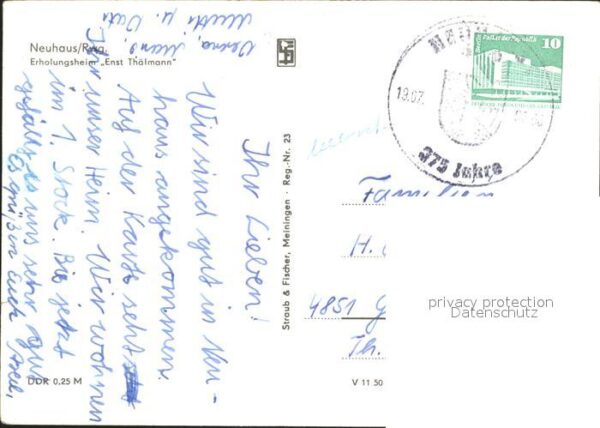 Neuhaus/Rwg.
Erholungsheim „Enst Thälmann"
Ihr Lieben!
Wir sind gut in Neu-
haus angekommen.
Auf der Karte seht
Ihr unser Heim. Wir wohnen
im 1. Stock. Bis jetzt
gefällt es uns sehr gut
Es grüßen Euch
Mutti u. Vati
DDR 0,25 M
Straub & Fischer, Meiningen · Reg.-Nr. 23
V 11 50
10
19.07.
375 Jahre
Familie
H.
4851 G
Th.
privacy protection
Datenschutz